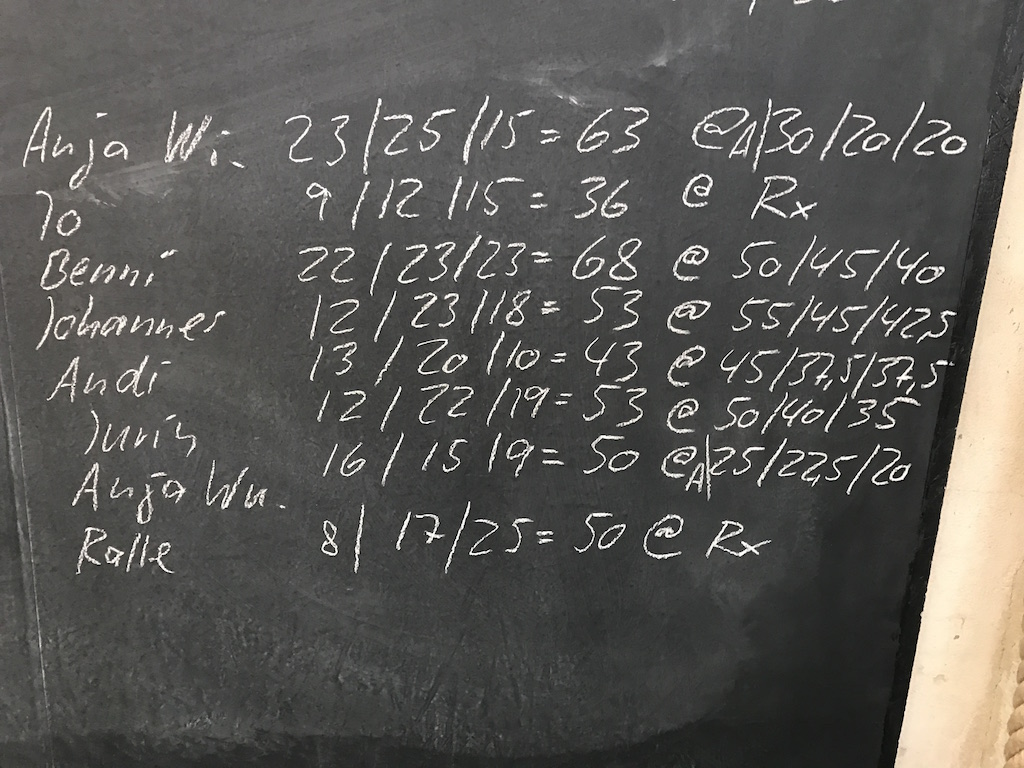 Anja Wi. 23/25/15 = 63 @A|30/20/20
Jo 9/12/15 = 36 @ Rx
Benni 22/23/23 = 68 @ 50/45/40
Johannes 12/23/18 = 53 @ 55/45/42,5
Andi 13/20/10 = 43 @ 45/37,5/37,5
Juris 12/22/19 = 53 @ 50/40/35
Anja Wu. 16/15/9 = 50 @A|25/22,5/20
Ralle 8/17/25 = 50 @ Rx